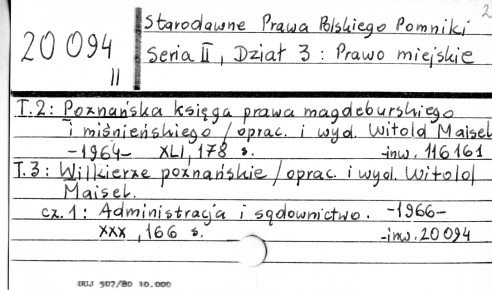 2
Starodawne Prawa Polskiego Pomniki
20 094
II
Seria II, Dział 3: Prawo miejskie
T.2: Poznańska księga prawa magdeburskiego
i miśnieńskiego / oprac. i wyd. Witold Maisel
-1964- XLI, 178 s. -inw. 116161
T.3: Wilkierze poznańskie / oprac. i wyd. Witold
Maisel.
cz.1: Administracja i sądownictwo. -1966-
XXX, 166 s. -inw. 20094
DUJ 507/80 10.000